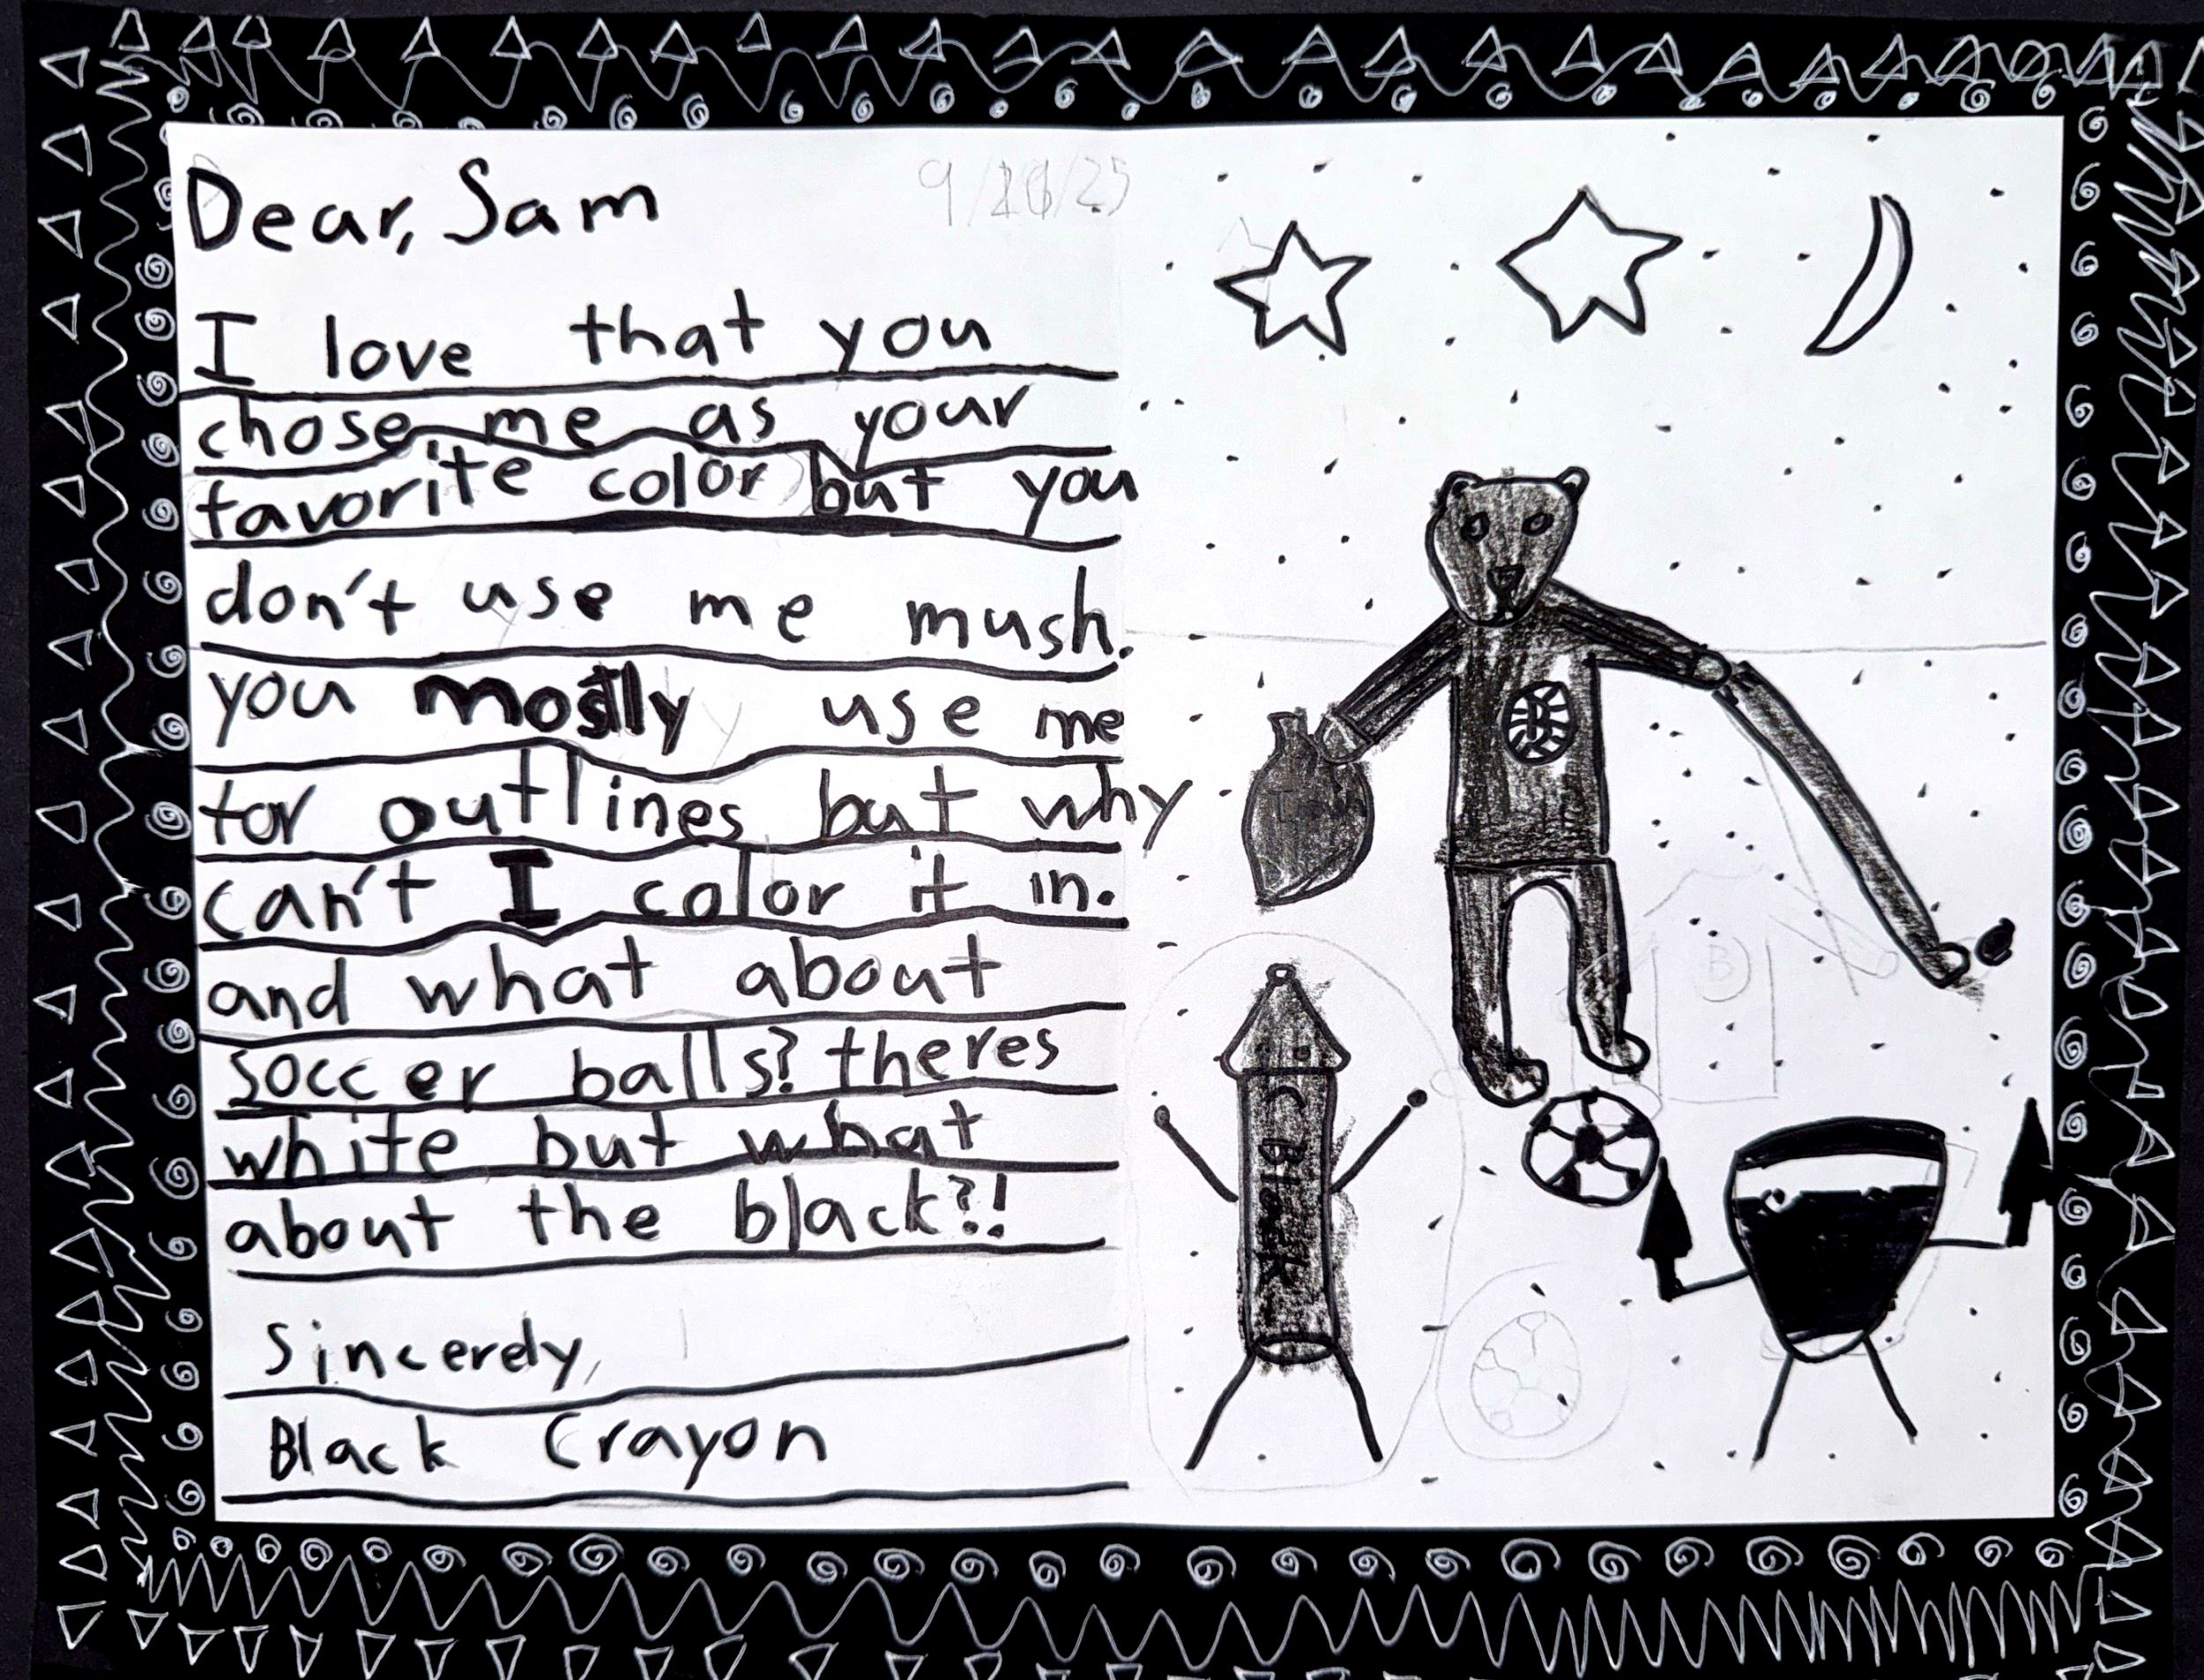 Dear, Sam
I love that you
chose me as your
favorite color but you
don't use me mush.
you mostly use me
for outlines but why
can't I color it in.
and what about
soccer balls? theres
white but what
about the black?!
Sincerely,
Black Crayon
B
C Black
B